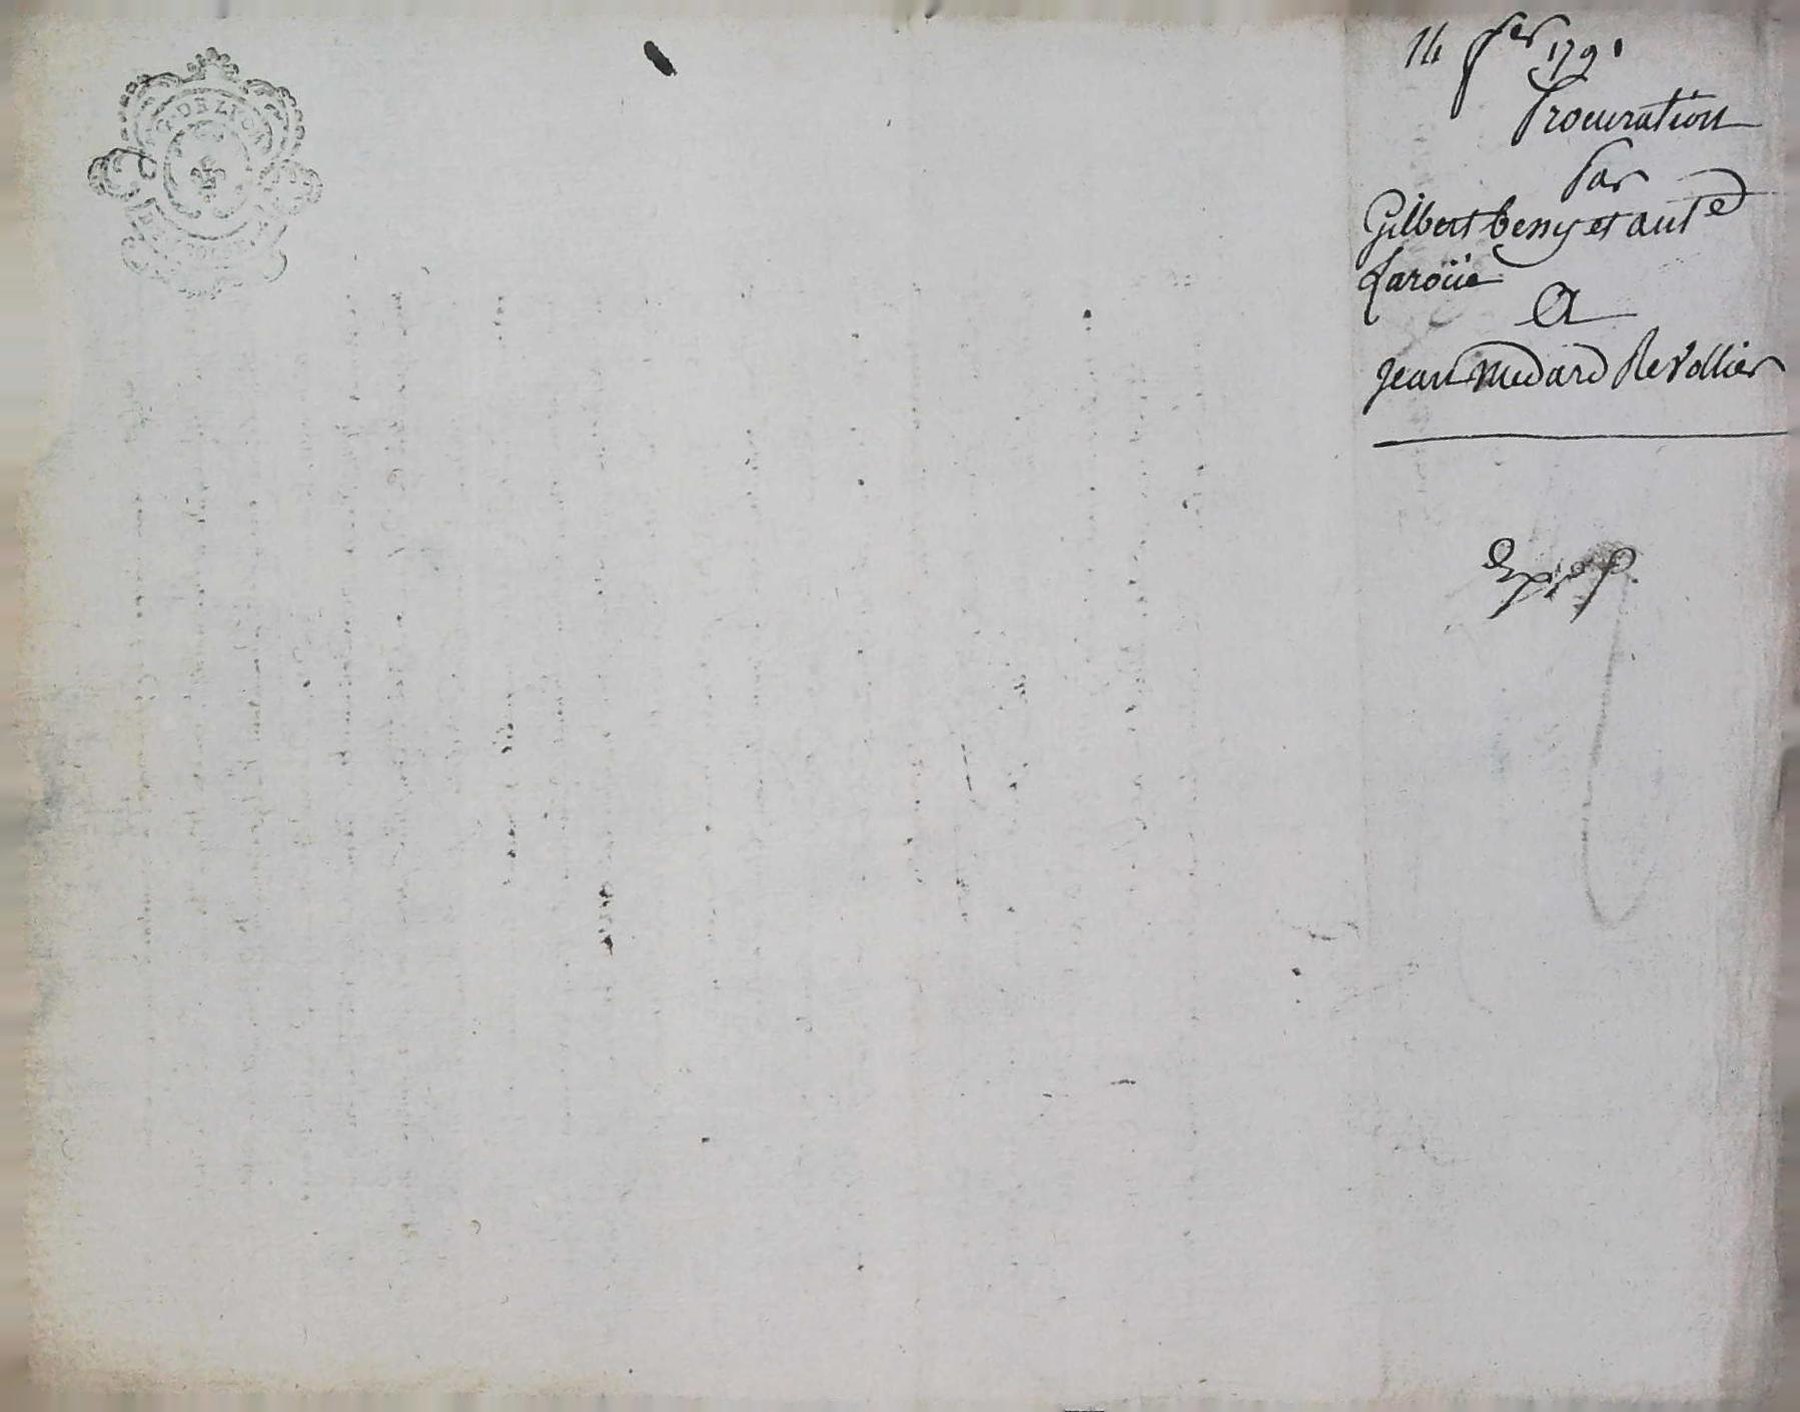 14 fer 1791
Procuration
Par
Gilbert beny et aut e
Laroüe
A
jean medard Revollier
DE LYON